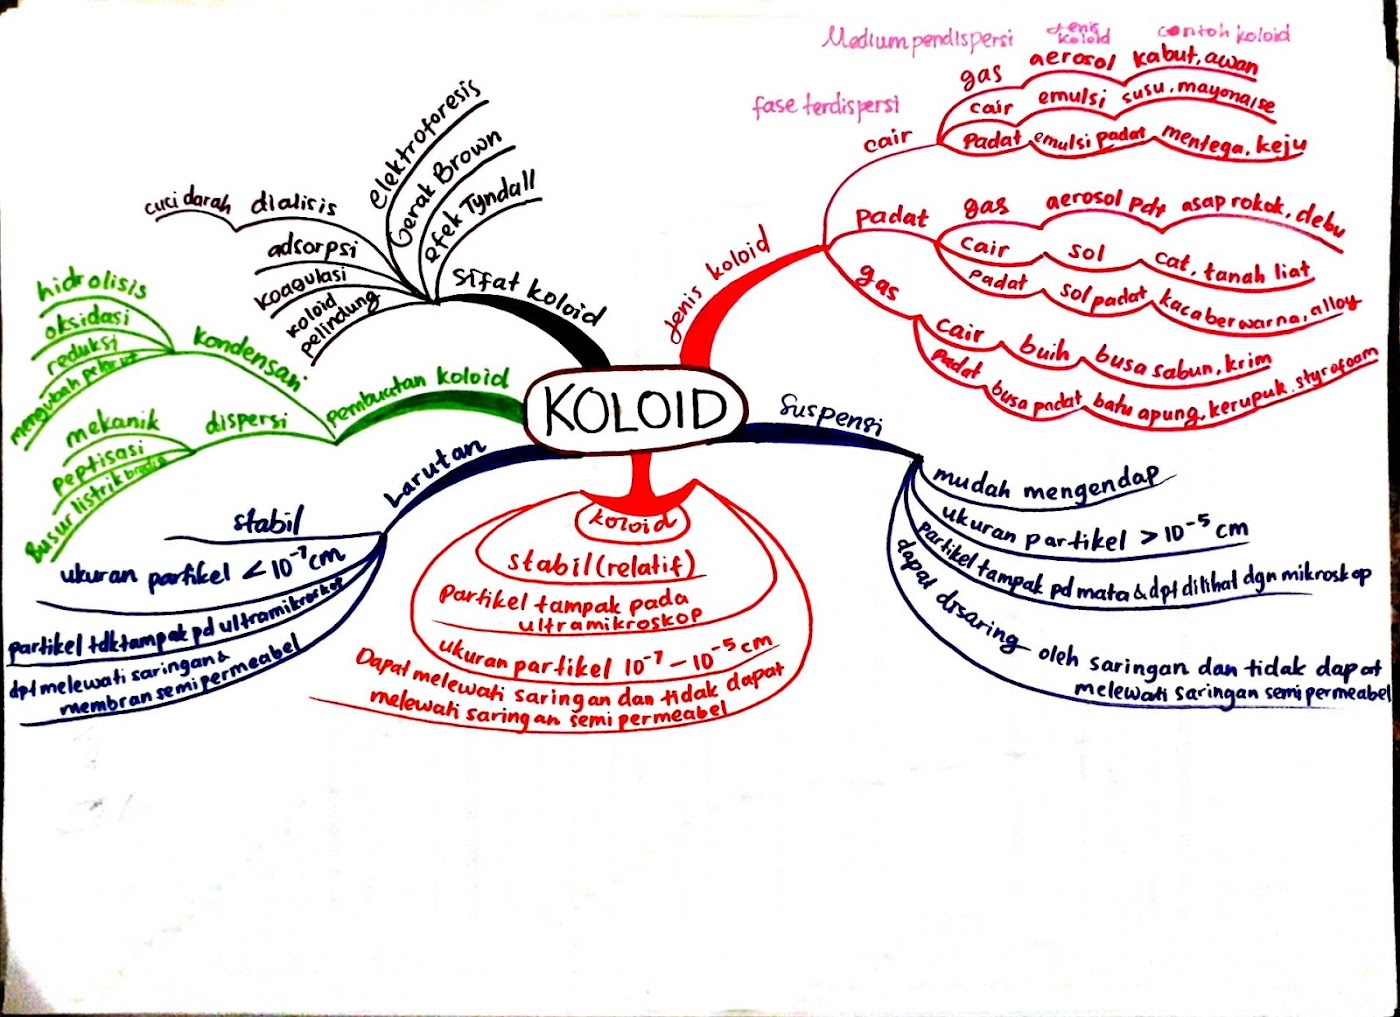 KOLOID
Jenis koloid
Medium pendispersi
Jenis koloid
contoh koloid
fase terdispersi
cair
gas aerosol kabut, awan
cair emulsi susu, mayonaise
padat emulsi padat mentega, keju
padat
gas aerosol pdt asap rokok, debu
cair sol cat, tanah liat
padat sol padat kaca berwarna, alloy
gas
cair buih busa sabun, krim
padat busa padat batu apung, kerupuk, styrofoam
Suspensi
mudah mengendap
ukuran partikel > 10⁻⁵ cm
partikel tampak pd mata & dpt dilihat dgn mikroskop
dapat disaring oleh saringan dan tidak dapat
melewati saringan semi permeabel
koloid
stabil (relatif)
Partikel tampak pada
ultramikroskop
ukuran partikel 10⁻⁷ – 10⁻⁵ cm
Dapat melewati saringan dan tidak dapat
melewati saringan semi permeabel
Larutan
stabil
ukuran partikel < 10⁻⁷ cm
partikel tdk tampak pd ultramikroskop
dpt melewati saringan &
membran semi permeabel
Pembuatan koloid
kondensasi
hidrolisis
oksidasi
reduksi
mengubah pelarut
dispersi
mekanik
peptisasi
Busur listrik bredia
Sifat koloid
elektroforesis
Gerak Brown
efek Tyndall
dialisis
cuci darah
adsorpsi
koagulasi
koloid
pelindung